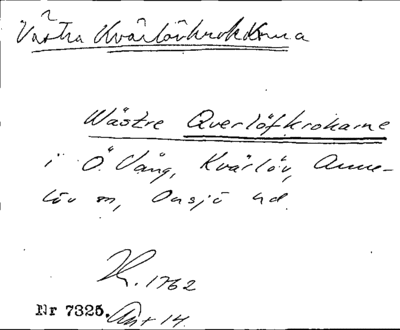 Västra Kvärlövkrokarna
Wästre Qverlöfkrokarne
i Ö. Vång, Kvärlöv, Anne-
löv sn, Onsjö hd.
K. 1762
Nr 7325. Akt 14.